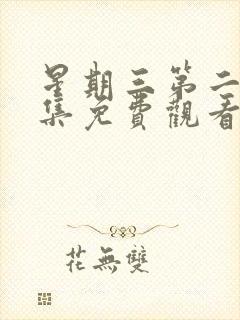 星期三第二
集免費觀看
花無雙